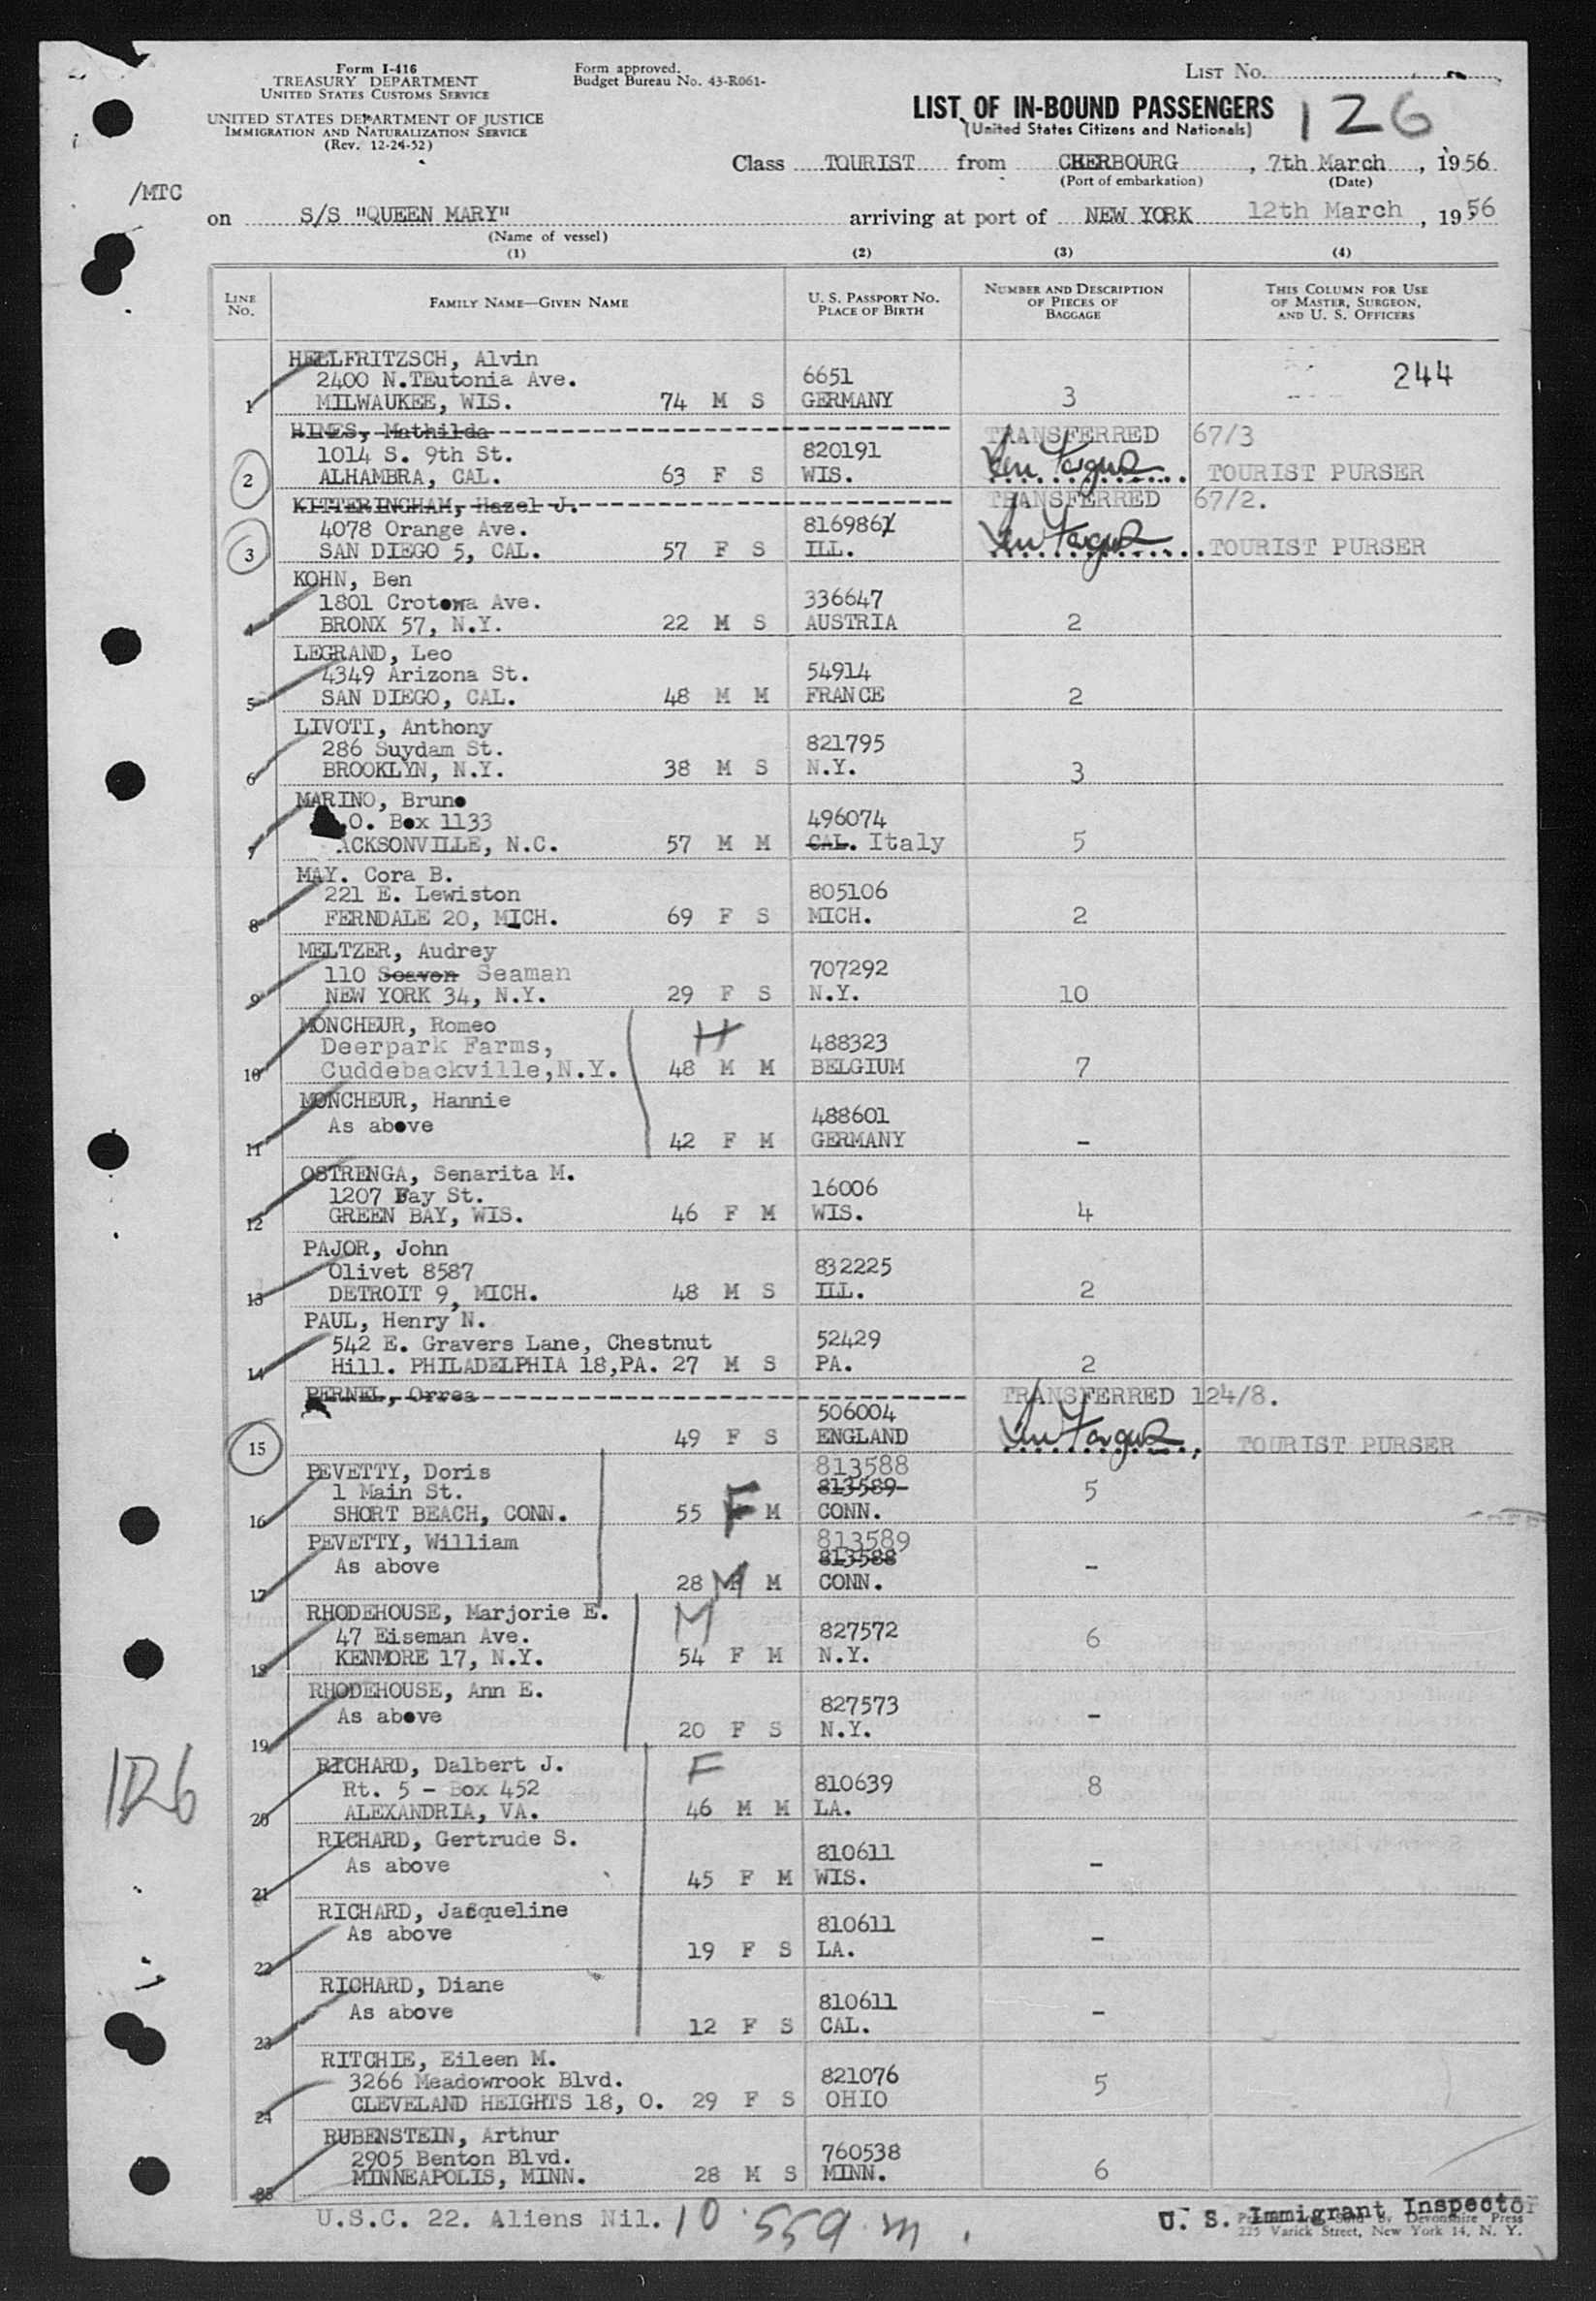 Form I-416
TREASURY DEPARTMENT
UNITED STATES CUSTOMS SERVICE
UNITED STATES DEPARTMENT OF JUSTICE
IMMIGRATION AND NATURALIZATION SERVICE
(Rev. 12-24-52)
Form approved.
Budget Bureau No. 43-R061-
LIST No.
LIST OF IN-BOUND PASSENGERS
(United States Citizens and Nationals)
126
Class TOURIST from CHERBOURG, 7th March, 1956
(Port of embarkation) (Date)
/MTC
on S/S "QUEEN MARY" arriving at port of NEW YORK 12th March, 1956
(Name of vessel)
(1) (2) (3) (4)
LINE No. FAMILY NAME—GIVEN NAME U. S. PASSPORT NO. PLACE OF BIRTH NUMBER AND DESCRIPTION OF PIECES OF BAGGAGE THIS COLUMN FOR USE OF MASTER, SURGEON, AND U. S. OFFICERS
HELLFRITZSCH, Alvin
2400 N.TEutonia Ave. 6651 244
1 MILWAUKEE, WIS. 74 M S GERMANY 3
HIMES, Mathilda TRANSFERRED 67/3
1014 S. 9th St. 820191
2 ALHAMBRA, CAL. 63 F S WIS. TOURIST PURSER
KITTERINGHAM, Hazel J. TRANSFERRED 67/2.
4078 Orange Ave. 816986
3 SAN DIEGO 5, CAL. 57 F S ILL. TOURIST PURSER
KOHN, Ben
1801 Crotona Ave. 336647
4 BRONX 57, N.Y. 22 M S AUSTRIA 2
LEGRAND, Leo
4349 Arizona St. 54914
5 SAN DIEGO, CAL. 48 M M FRANCE 2
LIVOTI, Anthony
286 Suydam St. 821795
6 BROOKLYN, N.Y. 38 M S N.Y. 3
MARINO, Bruno
.O. Box 1133 496074
7 ACKSONVILLE, N.C. 57 M M CAL. Italy 5
MAY. Cora B.
221 E. Lewiston 805106
8 FERNDALE 20, MICH. 69 F S MICH. 2
MELTZER, Audrey
110 Seaven Seaman 707292
9 NEW YORK 34, N.Y. 29 F S N.Y. 10
MONCHEUR, Romeo H
Deerpark Farms, 488323
10 Cuddebackville,N.Y. 48 M M BELGIUM 7
MONCHEUR, Hannie
As above 488601
11 42 F M GERMANY -
OSTRENGA, Senarita M.
1207 Bay St. 16006
12 GREEN BAY, WIS. 46 F M WIS. 4
PAJOR, John
Olivet 8587 832225
13 DETROIT 9, MICH. 48 M S ILL. 2
PAUL, Henry N.
542 E. Gravers Lane, Chestnut 52429
14 Hill. PHILADELPHIA 18,PA. 27 M S PA. 2
PERNEL, Orrea TRANSFERRED 124/8.
506004
15 49 F S ENGLAND TOURIST PURSER
PEVETTY, Doris 813588
1 Main St. 813589 5
16 SHORT BEACH, CONN. 55 F M CONN.
PEVETTY, William 813589
As above 813588 -
17 28 M M CONN.
RHODEHOUSE, Marjorie E. M
47 Eiseman Ave. 827572 6
18 KENMORE 17, N.Y. 54 F M N.Y.
RHODEHOUSE, Ann E.
As above 827573 -
19 20 F S N.Y.
RICHARD, Dalbert J. F
Rt. 5 - Box 452 810639 8
20 ALEXANDRIA, VA. 46 M M LA.
126
RICHARD, Gertrude S.
As above 810611 -
21 45 F M WIS.
RICHARD, Jacqueline
As above 810611 -
22 19 F S LA.
RICHARD, Diane
As above 810611 -
23 12 F S CAL.
RITCHIE, Eileen M.
3266 Meadowrook Blvd. 821076 5
24 CLEVELAND HEIGHTS 18, O. 29 F S OHIO
RUBENSTEIN, Arthur
2905 Benton Blvd. 760538
25 MINNEAPOLIS, MINN. 28 M S MINN. 6
U.S.C. 22. Aliens Nil. 10 559 m.
U. S. Immigrant Inspector
Devonshire Press
225 Varick Street, New York 14, N. Y.